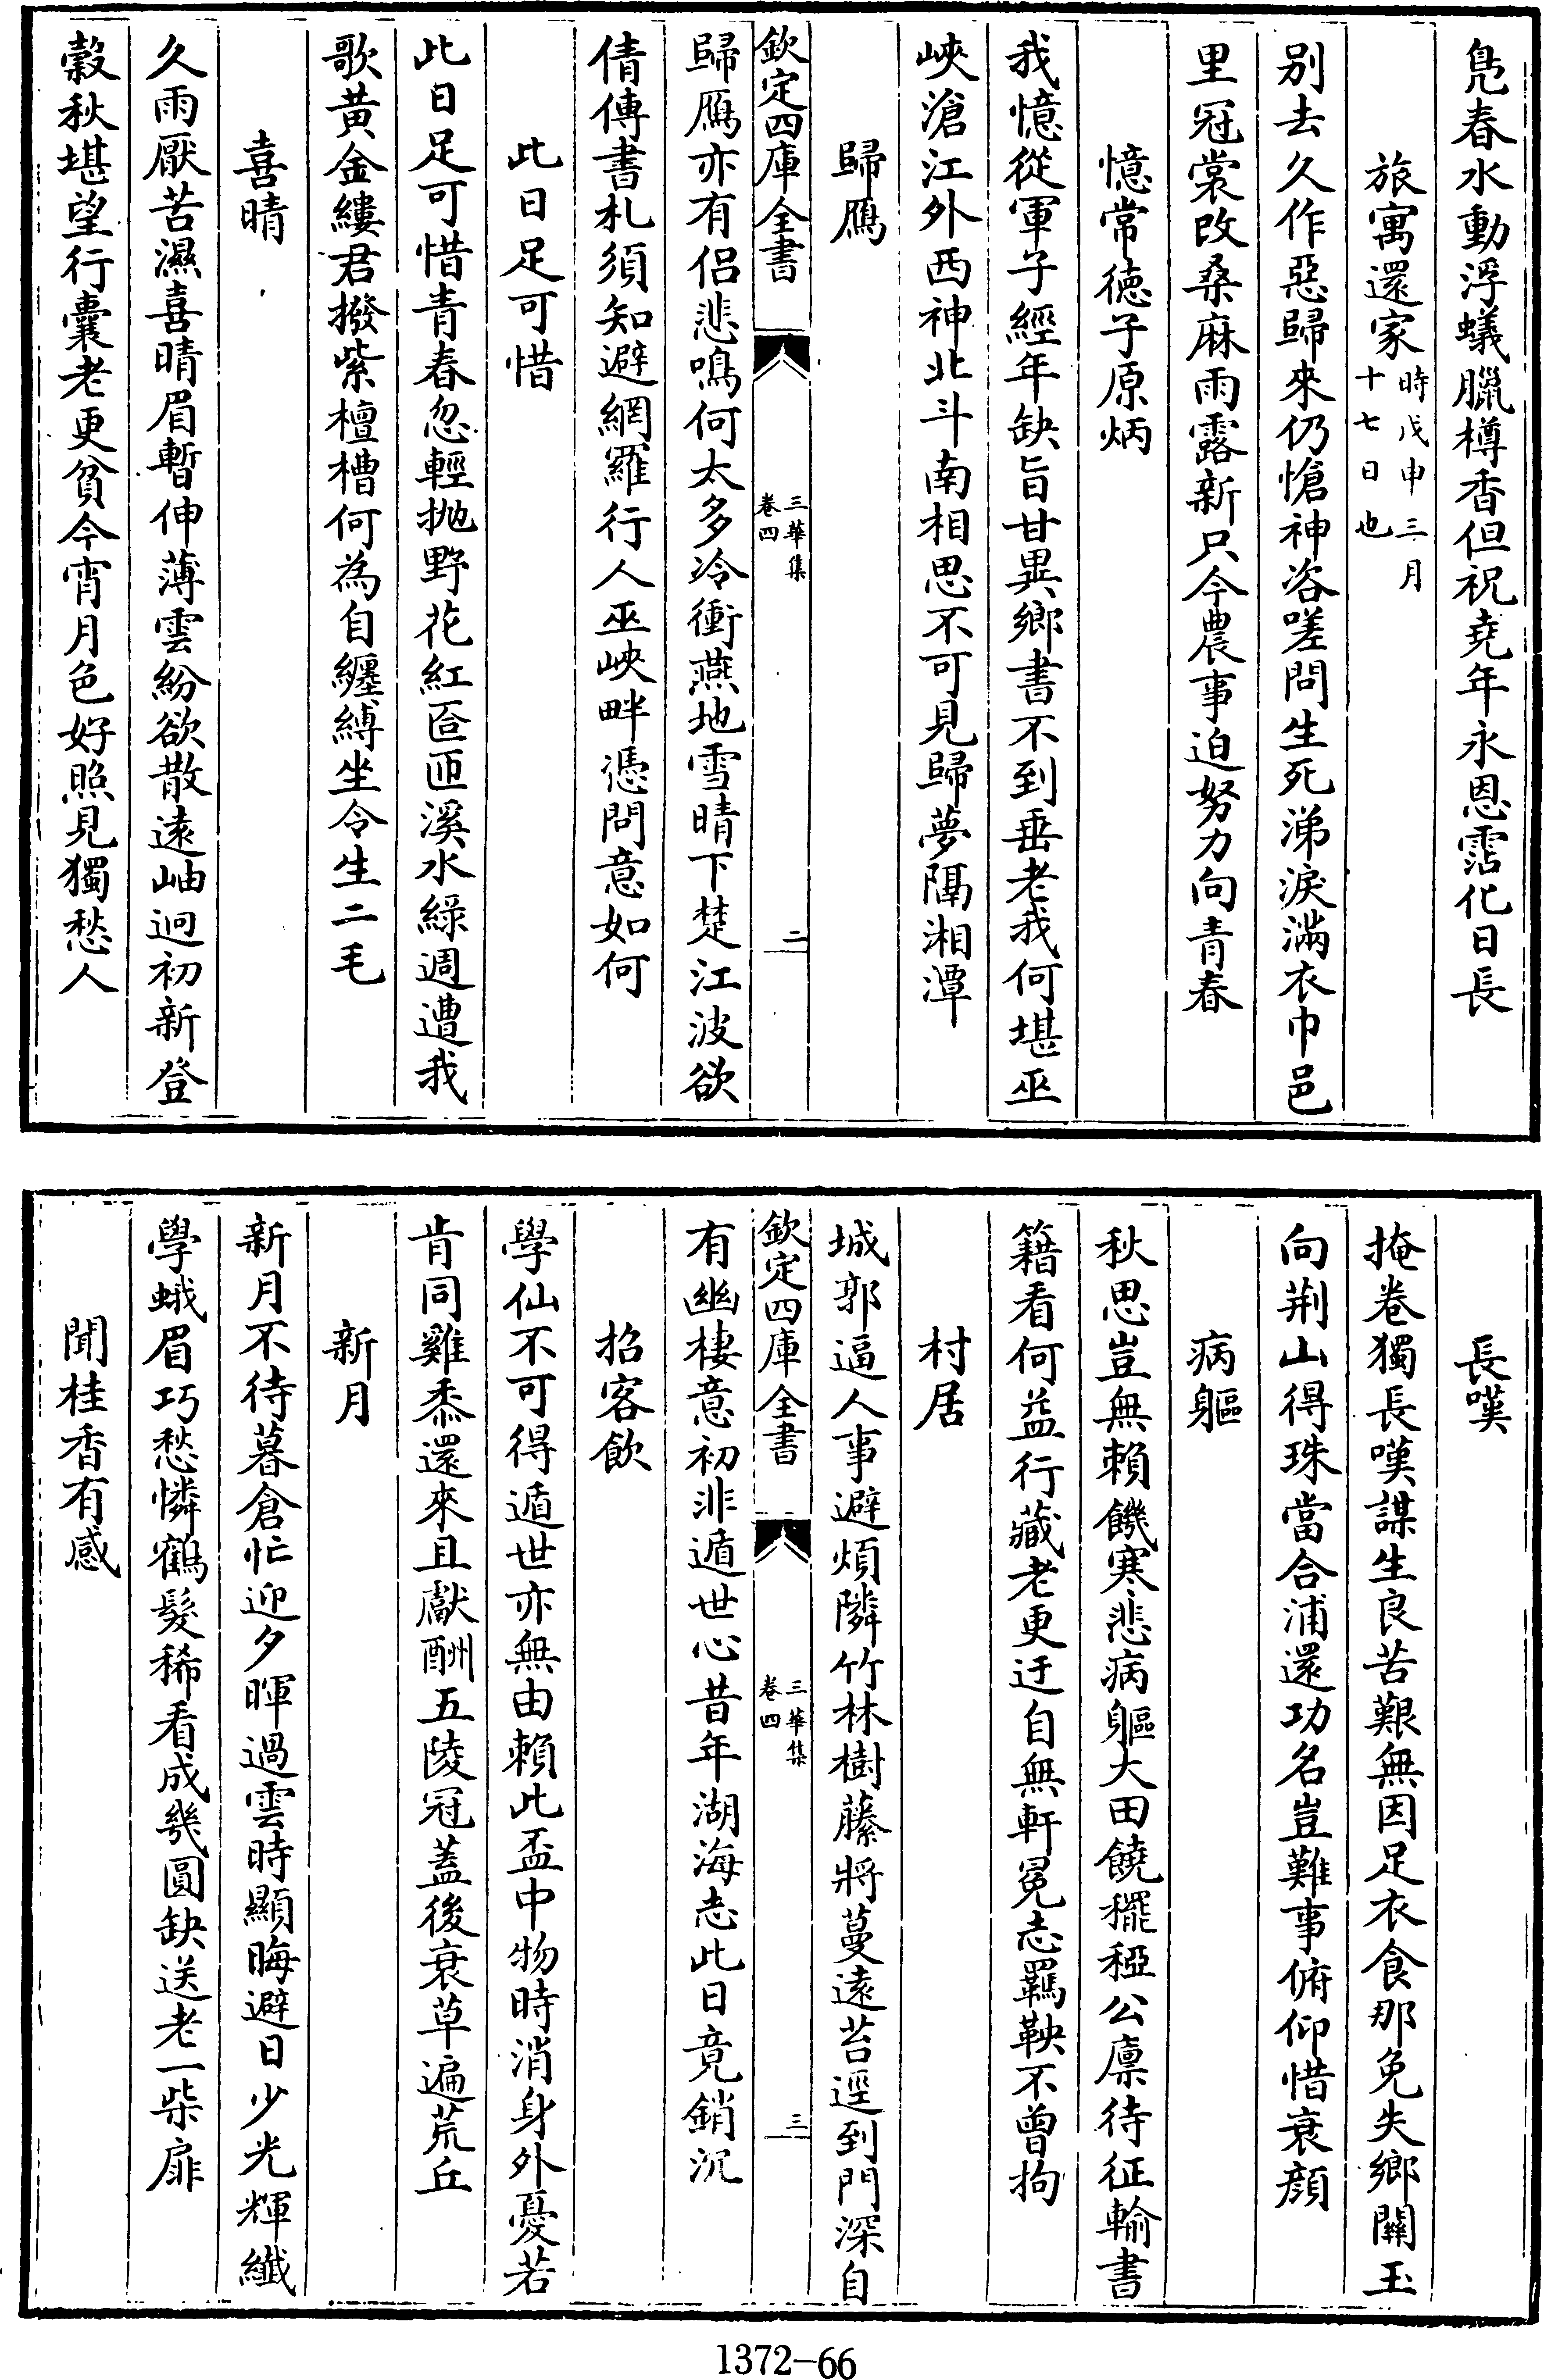 鳧春水動浮蟻臘樽香但祝堯年永恩霑化日長
旅寓還家時戊申三月
十七日也
别去久作惡歸來仍愴神咨嗟問生死涕淚滿衣巾邑
里冠裳改桑麻雨露新只今農事迫努力向青春
憶常徳子原炳
我憶從軍子經年缺旨甘異鄉書不到垂老我何堪巫
峽滄江外西神北斗南相思不可見歸夢隔湘潭
歸鴈
欽定四庫全書
三華集
卷四
二
歸鴈亦有侣悲鳴何太多冷衝燕地雪晴下楚江波欲
倩傳書札須知避網羅行人巫峽畔憑問意如何
此日足可惜
此日足可惜青春忽輕抛野花紅匼匝溪水綠週遭我
歌黄金縷君撥紫檀槽何為自纏縛坐令生二毛
喜晴
久雨厭苦濕喜晴眉暫伸薄雲紛欲散遠岫迥初新登
穀秋堪望行囊老更貧今宵月色好照見獨愁人
長嘆
掩卷獨長嘆謀生良苦艱無因足衣食那免失鄉關玉
向荆山得珠當合浦還功名豈難事俯仰惜衰顔
病軀
秋思豈無賴饑寒悲病軀大田饒䆉稏公廪待征輸書
籍看何益行藏老更迂自無軒冕志羈鞅不曾拘
村居
城郭逼人事避煩隣竹林樹藤將蔓遠苔逕到門深自
欽定四庫全書
三華集
卷四
三
有幽棲意初非遁世心昔年湖海志此日竟銷沉
招客飲
學仙不可得遁世亦無由賴此盃中物時消身外憂若
肯同雞黍還來且獻酬五陵冠蓋後衰草遍荒丘
新月
新月不待暮倉忙迎夕暉過雲時顯晦避日少光輝纖
學蛾眉巧愁憐鶴髮稀看成幾圓缺送老一柴扉
聞桂香有感
1372-66